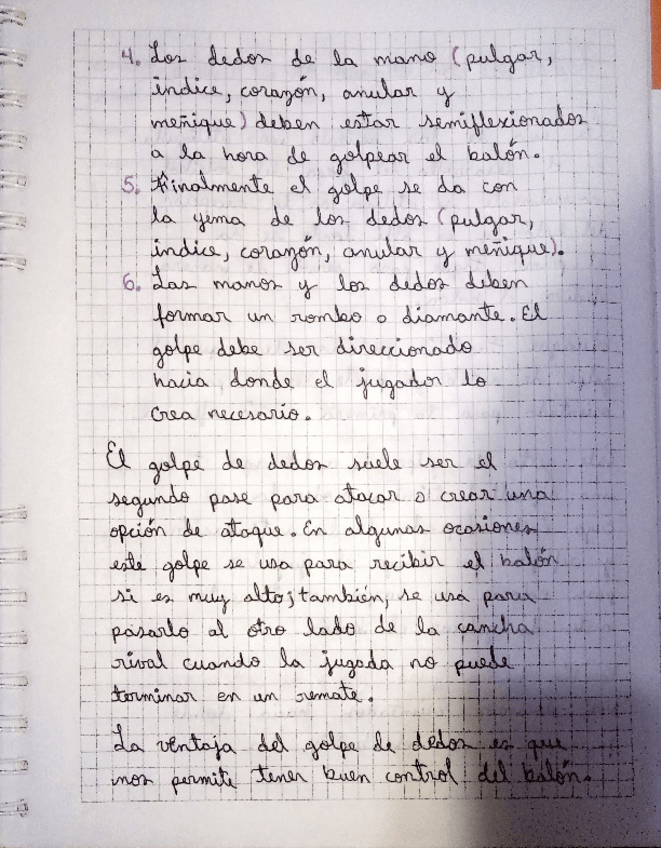 4. Los dedos de la mano (pulgar,
índice, corazón, anular y
meñique) deben estar semiflexionados
a la hora de golpear el balón.
5. Finalmente el golpe se da con
la yema de los dedos (pulgar,
índice, corazón, anular y meñique).
6. Las manos y los dedos deben
formar un rombo o diamante. El
golpe debe ser direccionado
hacia donde el jugador lo
crea necesario.
El golpe de dedos suele ser el
segundo pase para atacar o crear una
opción de ataque. En algunas ocasiones
este golpe se usa para recibir el balón
si es muy alto; también, se usa para
pasarlo al otro lado de la cancha
rival cuando la jugada no puede
terminar en un remate.
La ventaja del golpe de dedos es que
nos permite tener buen control del balón.